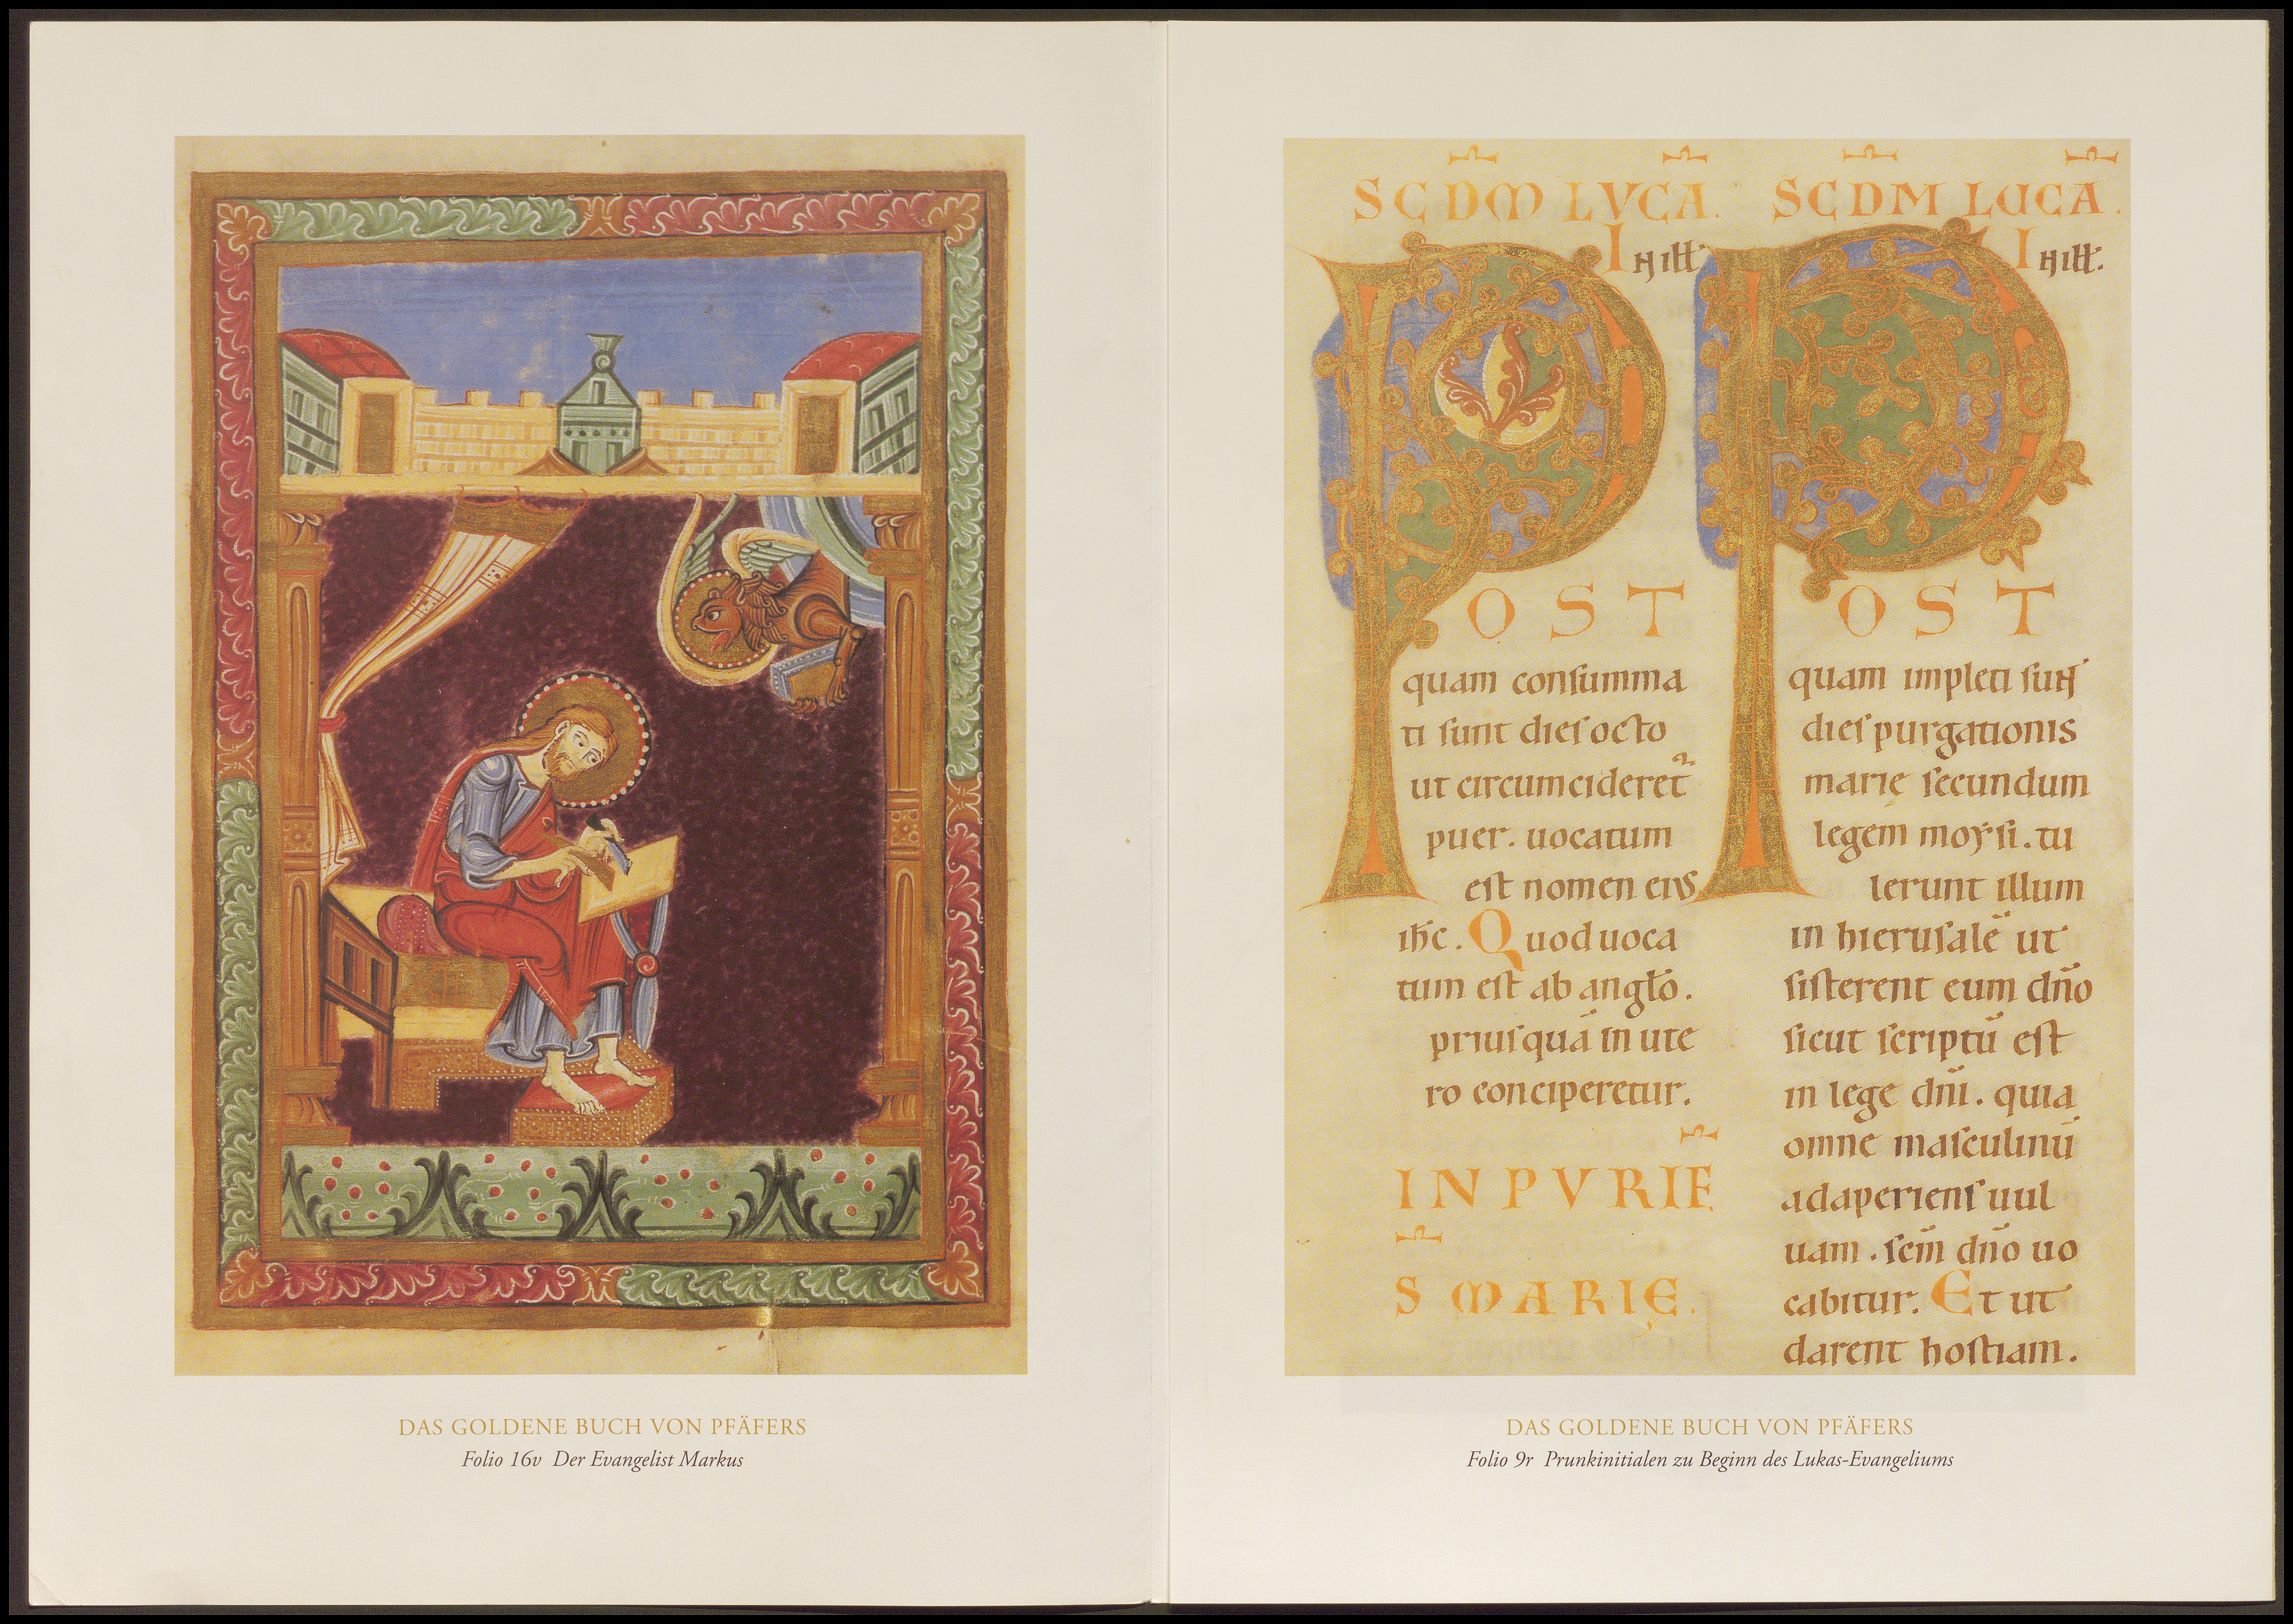 DAS GOLDENE BUCH VON PFÄFERS
Folio 16v Der Evangelist Markus
SCDM LVCA.
In iłł.
POST
quam conſumma
ti ſunt dieſ octo
ut circumcideret᷑
puer. uocatum
eſt nomen eiuſ
ihc̄. Quod uoca
tum eſt ab anglō.
priuſquā in ute
ro conciperetur.
IN PVRIF̄.
S̄ MARIĘ.
SCDM LUCA.
In iłł.
POST
quam impleti ſunt
dieſ purgationis
marię ſecundum
legem moyſi. tu
lerunt illum
in hieruſalē ut
ſiſterent eum dño
ſicut ſcriptū eſt
in lege dñi. quia
omne maſculinū
adaperienſ uul
uam. ſcm̄ dño uo
cabitur. Et ut
darent hoſtiam.
DAS GOLDENE BUCH VON PFÄFERS
Folio 9r Prunkinitialen zu Beginn des Lukas-Evangeliums